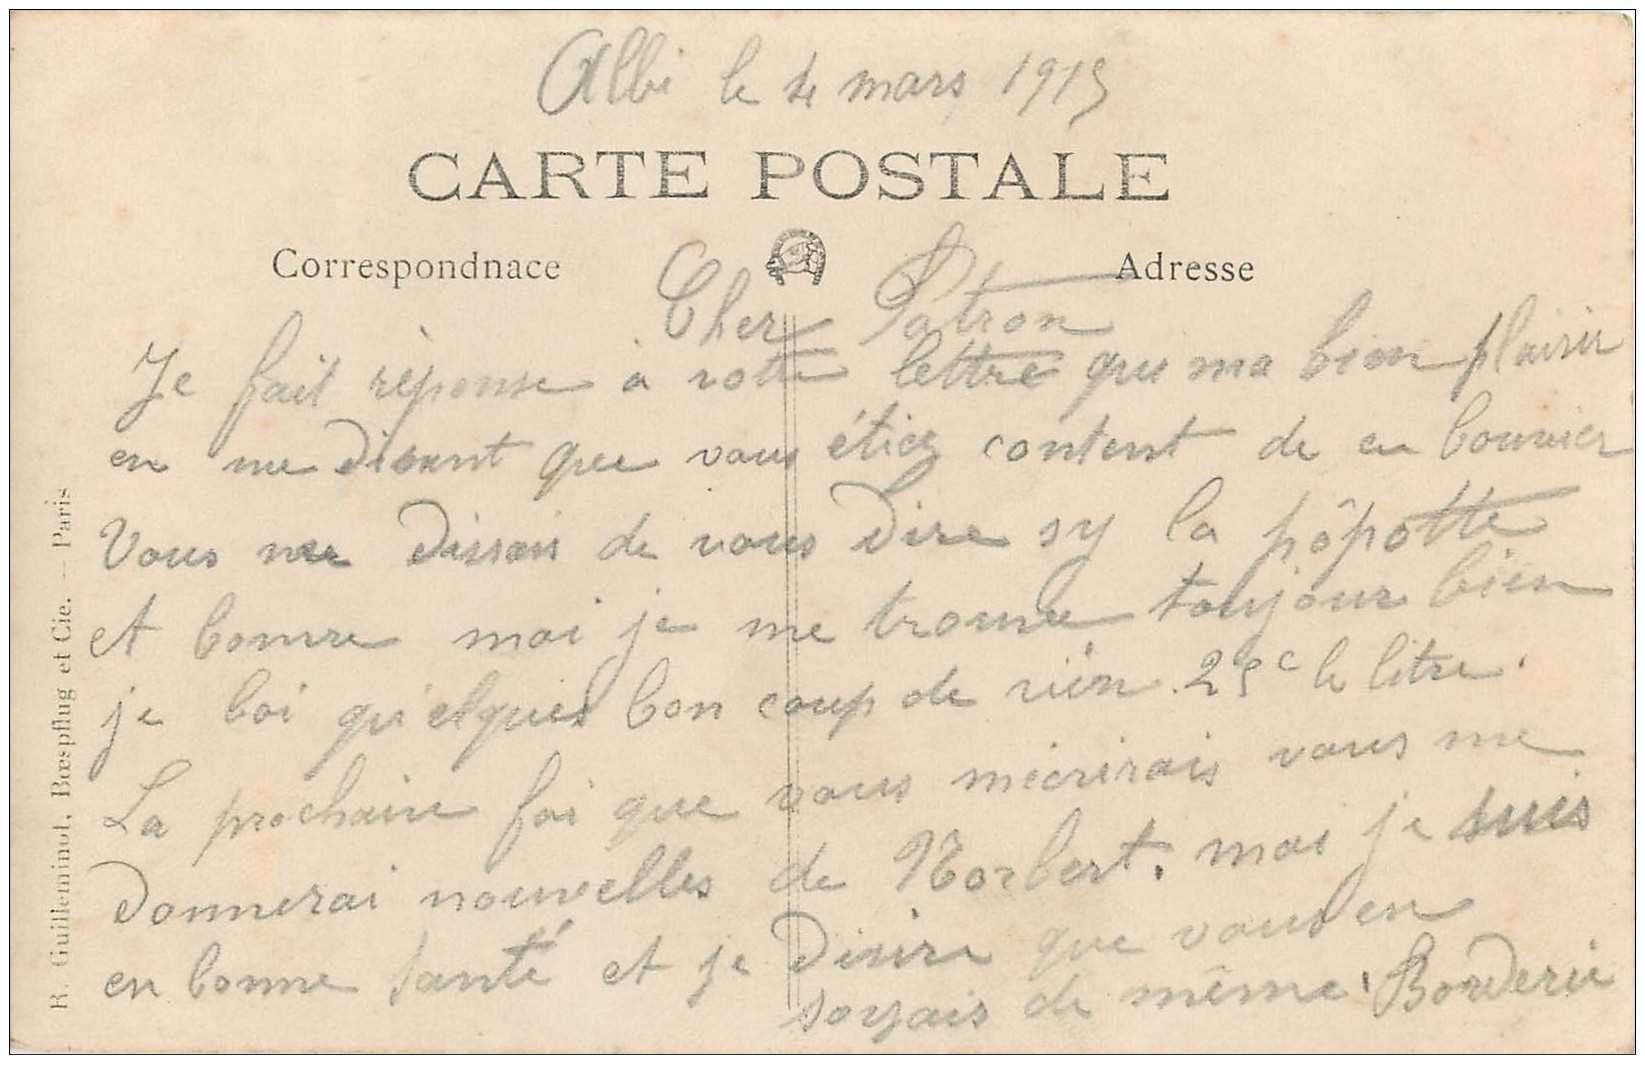 Albi le 4 mars 1915
CARTE POSTALE
Correspondnace
Adresse
Cher Patron
Je fait réponse a votte lettre que ma bien plaisir
en me disant que vous étiez content de en
Vous me de vous dire sy la pôpotte
et bonne moi je me trouve toujour bien
je boi qu'elques bon coup de vién 25c le litre.
La prochaine foi que vous mécrirais vous me
donnerai nouvelles de Norbert. moi je suis
en bonne santé et je désire que vous en
soyais de même. Borderie
R. Guilleminot, Bœspflug et Cie. — Paris